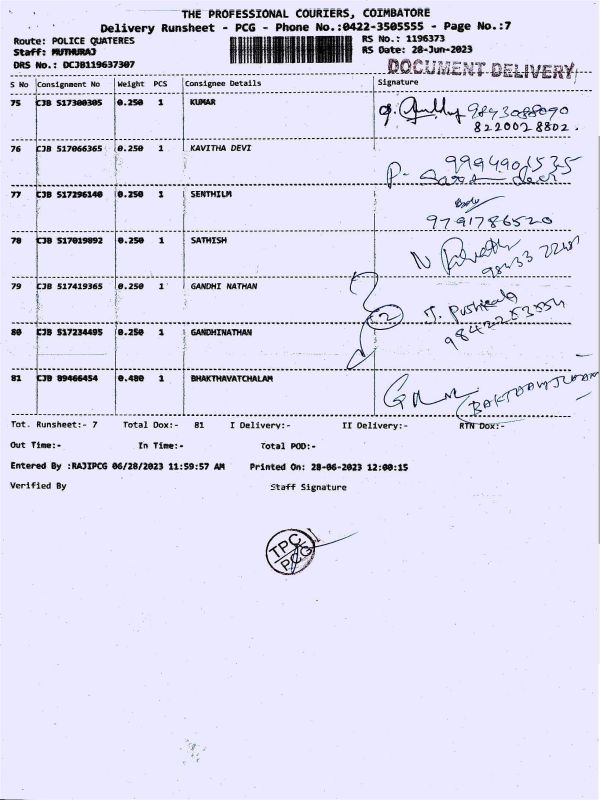 THE PROFESSIONAL COURIERS, COIMBATORE
Delivery Runsheet - PCG - Phone No.:0422-3505555 - Page No.:7
Route: POLICE QUATERES RS No.: 1196373
Staff: MUTHURAJ RS Date: 28-Jun-2023
DRS No.: DCJB119637307 DOCUMENT DELIVERY
S No Consignment No Weight PCS Consignee Details Signature
75 CJB 517300305 0.250 1 KUMAR 9843088090
8220028802.
76 CJB 517066365 0.250 1 KAVITHA DEVI 9994901535
P-
77 CJB 517296140 0.250 1 SENTHILM
9791786520
78 CJB 517019892 0.250 1 SATHISH N
79 CJB 517419365 0.250 1 GANDHI NATHAN
2 J. Pushpala
80 CJB 517234495 0.250 1 GANDHINATHAN
81 CJB 89466454 0.480 1 BHAKTHAVATCHALAM
Tot. Runsheet:- 7 Total Dox:- 81 I Delivery:- II Delivery:- RTN Dox:-
Out Time:- In Time:- Total POD:-
Entered By :RAJIPCG 06/28/2023 11:59:57 AM Printed On: 28-06-2023 12:00:15
Verified By Staff Signature
TPC
PCG